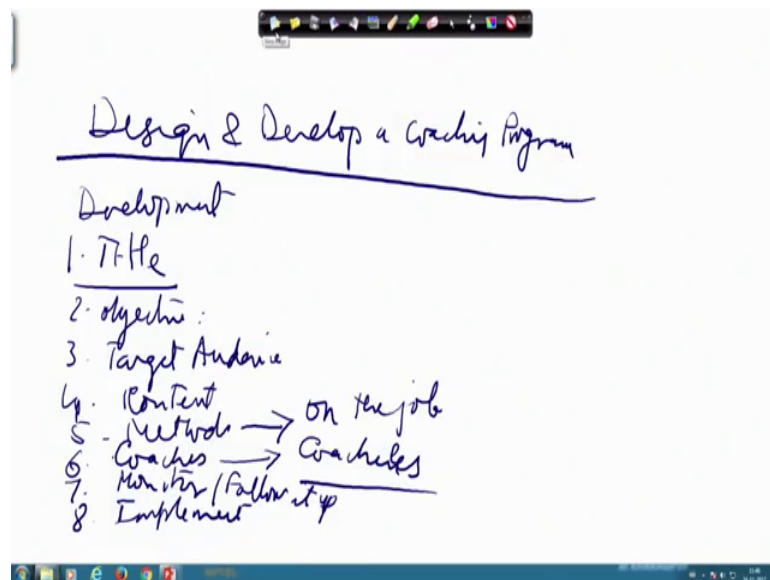 Design & Develop a Coaching Program
Development
1. Title
2. Objective:
3. Target Audience
4. Content
5. Methods → on the job
6. Coaches → Coachees
7. Monitor / Follow it up
8 Implement